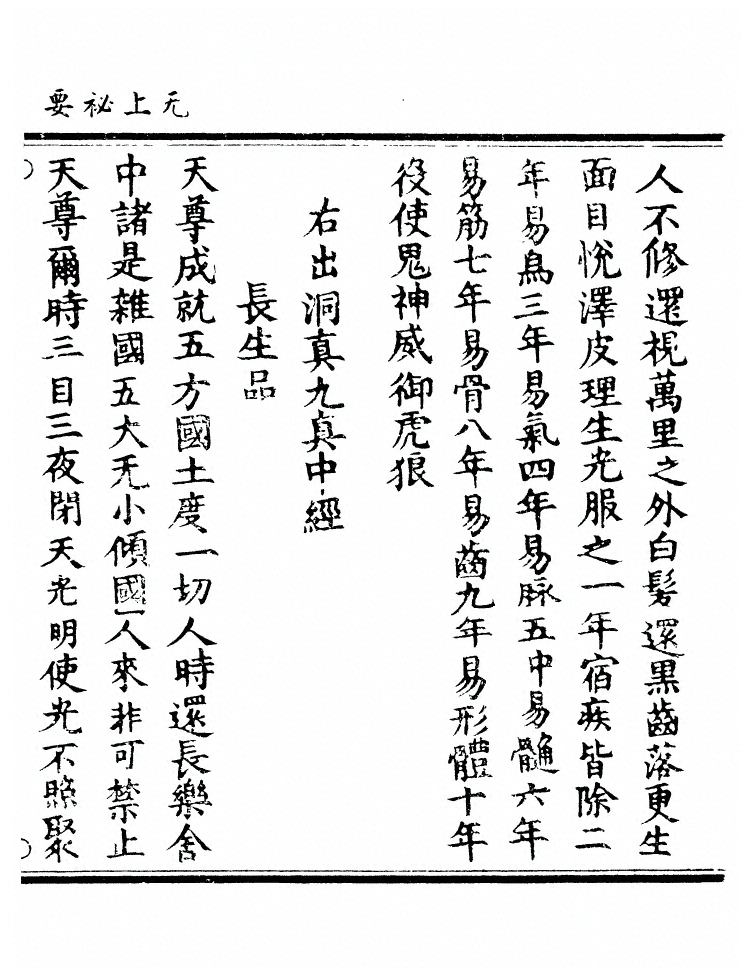 无上祕要
人不修還梘萬里之外白髪還黒齒落更生
面目悅澤皮理生光服之一年宿疾皆除二
年易鳥三年易氣四年易脉五中易髓六年
易筋七年易骨八年易齒九年易形體十年
役使鬼神威御虎狼
右出洞真九真中經
長生品
天尊成就五方國土度一切人時還長樂舍
中諸是雜國五大无小傾國一人來非可禁止
天尊爾時三目三夜閉天光明使光不照聚